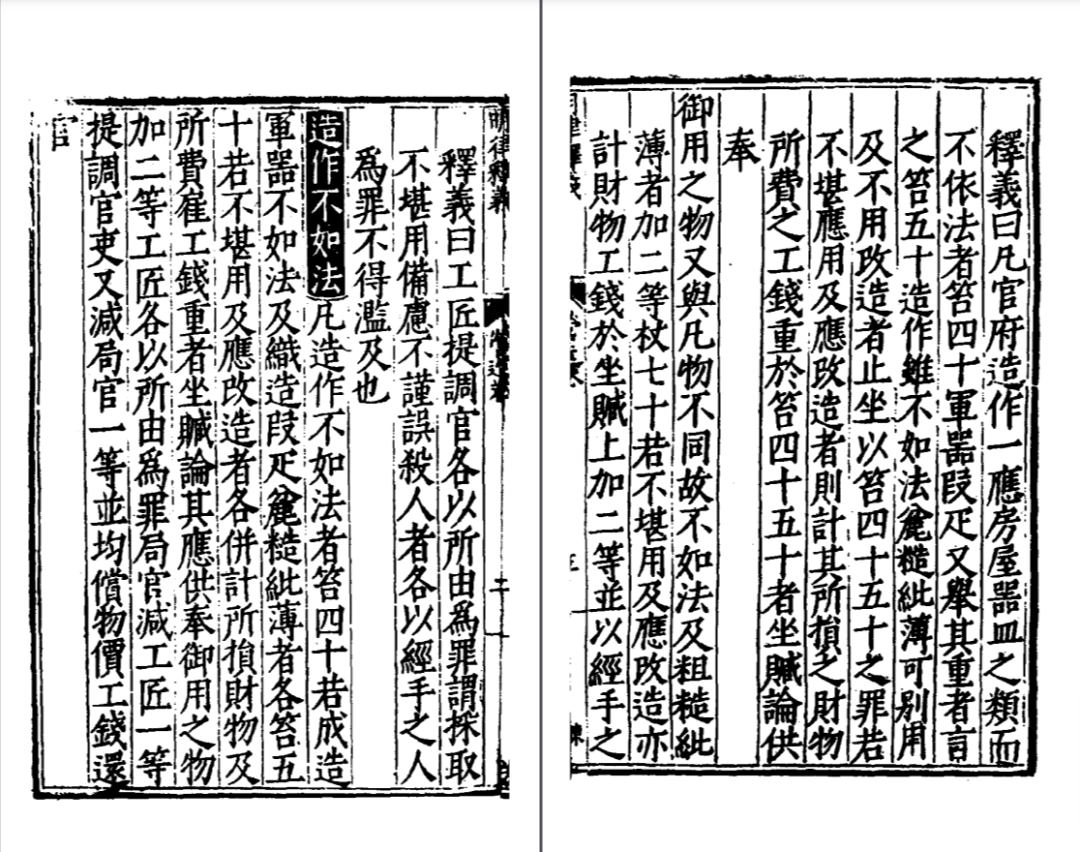 明律釋義
釋義曰工匠提調官各以所由爲罪謂採取
不堪用備慮不謹誤殺人者各以經手之人
爲罪不得濫及也
造作不如法 凡造作不如法者笞四十若成造
軍器不如法及織造段疋麄糙紕薄者各笞五
十若不堪用及應改造者各併計所損財物及
所費雇工錢重者坐贓論其應供奉御用之物
加二等工匠各以所由爲罪局官減工匠一等
提調官吏又減局官一等並均償物價工錢還
官
釋義曰凡官府造作一應房屋器皿之類而
不依法者笞四十軍器段疋又舉其重者言
之笞五十造作雖不如法麄糙紕薄可別用
及不用改造者止坐以笞四十五十之罪若
不堪應用及應改造者則計其所損之財物
所費之工錢重於笞四十五十者坐贓論供
奉
御用之物又與凡物不同故不如法及粗糙紕
薄者加二等杖七十若不堪用及應改造亦
計財物工錢於坐贓上加二等並以經手之